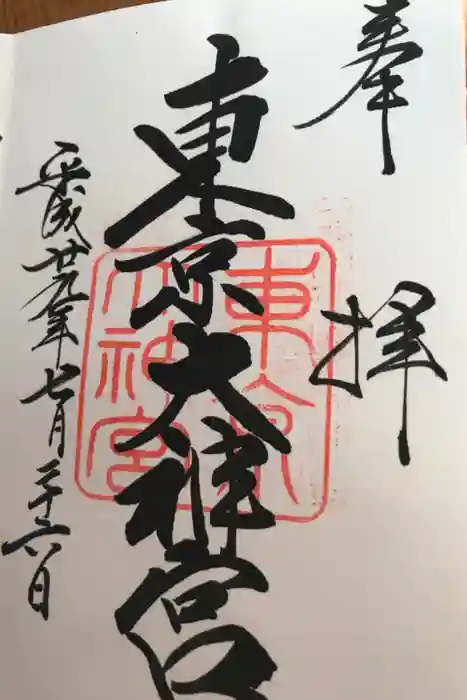 奉拝
東京大神宮
平成廿九年七月二十六日
東京大神宮